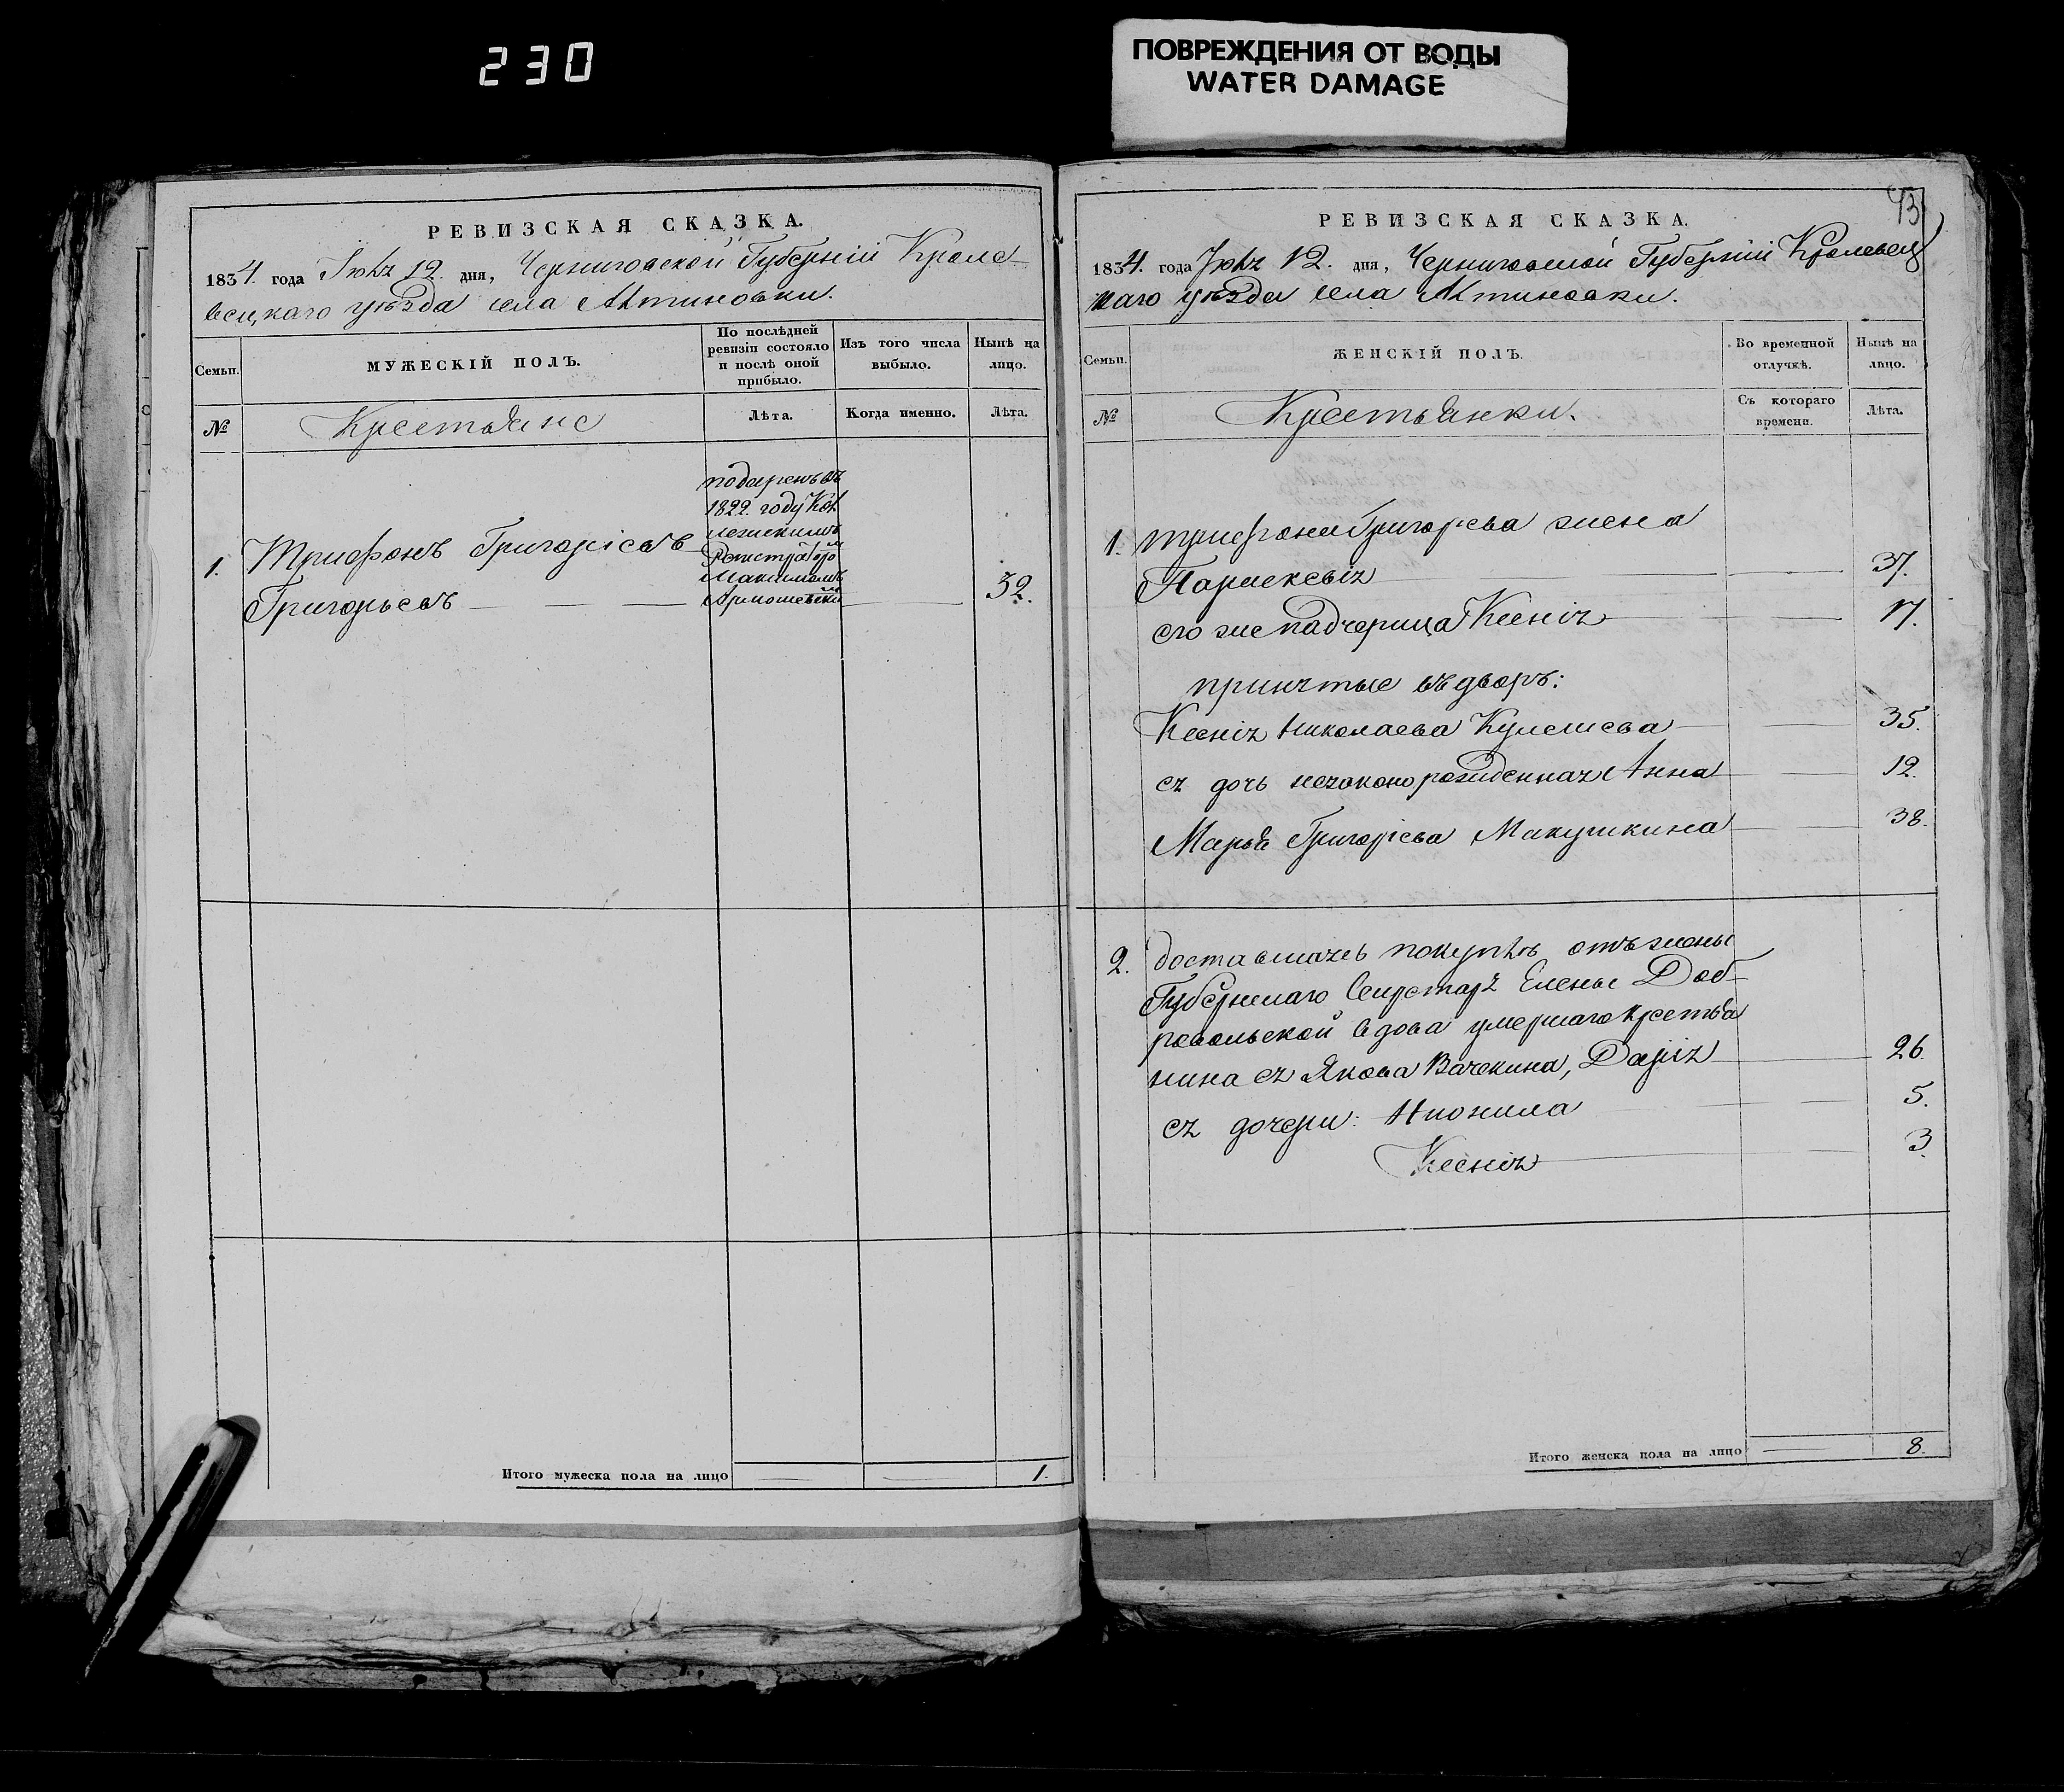 230
ПОВРЕЖДЕНИЯ ОТ ВОДЫ
WATER DAMAGE
РЕВИЗСКАЯ СКАЗКА.
1834. года Іюля 12. дня, Черниговской Губерніи Кроле-
вецкаго уѣзда села Актиновки.
Семьи.
МУЖЕСКІЙ ПОЛЪ.
По послѣдней
ревизіи состояло
и послѣ оной
прибыло.
Изъ того числа
выбыло.
Нынѣ на
лицо.
№
Крестьяне
Лѣта.
Когда именно.
Лѣта.
подаренъ въ
1822. году Кол
лежскимъ
Регистраторо
Максимомъ
1. Трифонъ Григоріевъ
Григорьевъ 32.
Итого мужеска пола на лицо 1.
43
РЕВИЗСКАЯ СКАЗКА.
1834. года Іюля 12. дня, Черниговской Губерніи Кролевец
каго уѣзда села Актиновки.
Семьи.
ЖЕНСКІЙ ПОЛЪ.
Во временной
отлучкѣ.
Нынѣ на
лицо.
№
Крестьянки.
Съ котораго
времени.
Лѣта.
1. Трифона Григорьева жена
Параскевія 37.
его же падчерица Ксенія 17.
принятые въ дворъ:
Ксенія Николаева Кулешева 35.
ея дочь незаконо рожденная Анна 12.
Марья Григоріева Макушкина 38.
2. доставшаясь покупкѣ отъ жены
Губернскаго Секретаря Елены Доб-
ровольской вдова умершаго крестья
нина ея Якова Вачекина, Дарія 26.
ея дочери: Неонила 5.
Ксенія 3.
Итого женска пола на лицо 8.